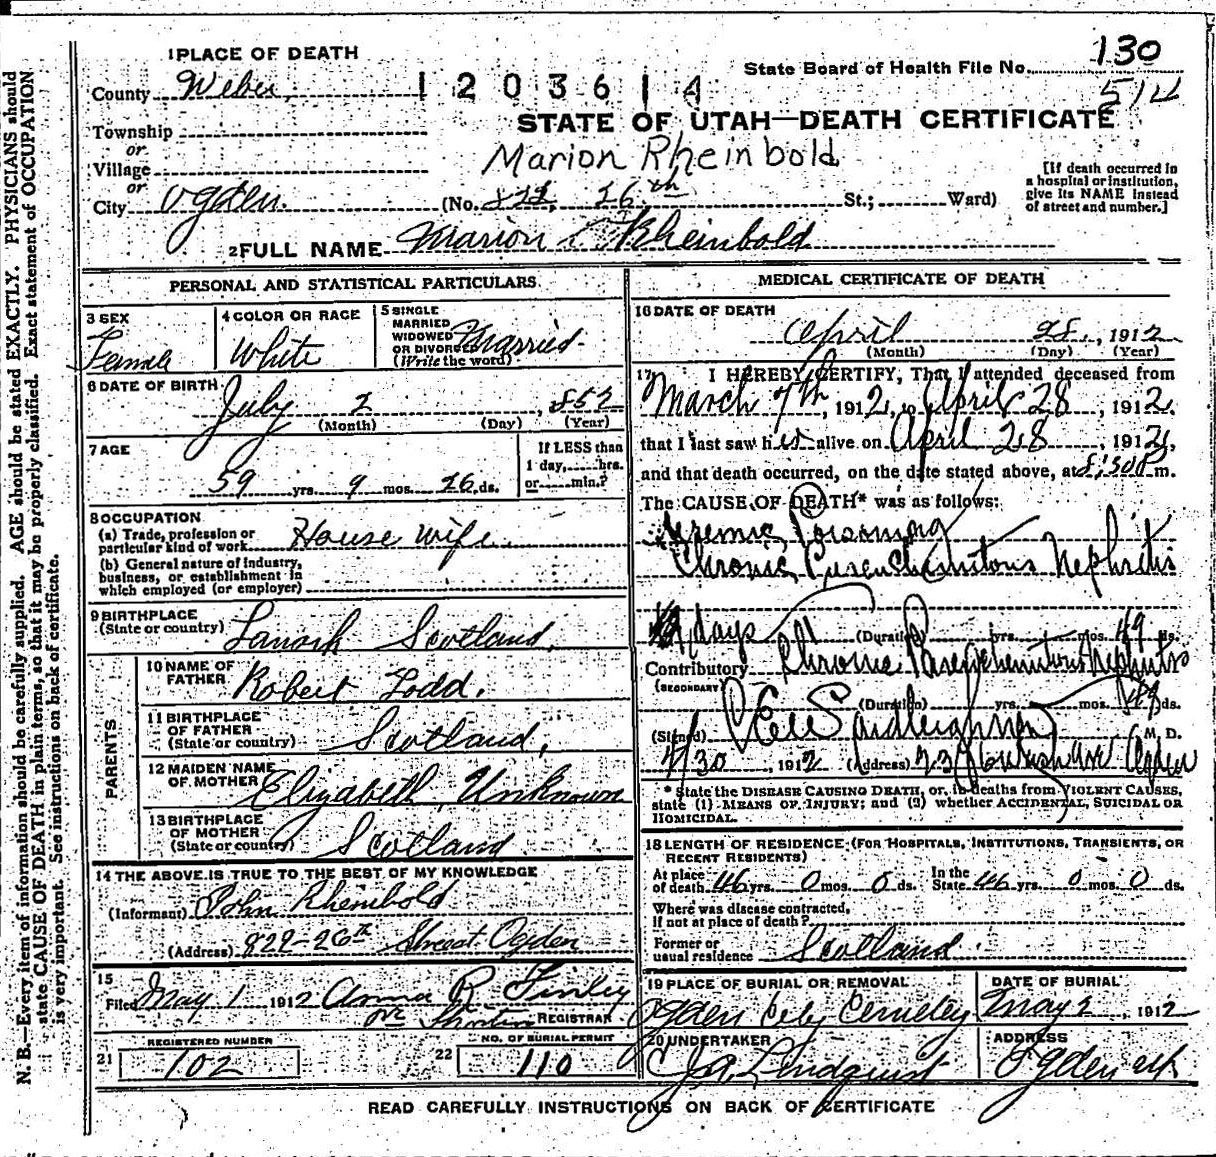 1 PLACE OF DEATH
County Weber
1203614
State Board of Health File No. 130
514
STATE OF UTAH—DEATH CERTIFICATE
Township
or
Village
or
City Ogden.
Marion Rheinbold
(No. 822 26th St.; Ward)
[If death occurred in
a hospital or institution,
give its NAME instead
of street and number.]
2 FULL NAME Marion T Rheinbold
PERSONAL AND STATISTICAL PARTICULARS
3 SEX
Female
4 COLOR OR RACE
White
5 SINGLE
MARRIED
WIDOWED
OR DIVORCED
(Write the word)
Married.
6 DATE OF BIRTH
July 2, 1852
(Month) (Day) (Year)
7 AGE
59 yrs. 9 mos. 26 ds.
If LESS than
1 day, hrs.
or min.?
8 OCCUPATION
(a) Trade, profession or
particular kind of work House wife.
(b) General nature of industry,
business, or establishment in
which employed (or employer)
9 BIRTHPLACE
(State or country) Lanark Scotland,
PARENTS
10 NAME OF
FATHER Robert Todd.
11 BIRTHPLACE
OF FATHER
(State or country) Scotland,
12 MAIDEN NAME
OF MOTHER Elizabeth Unknown
13 BIRTHPLACE
OF MOTHER
(State or country) Scotland
14 THE ABOVE IS TRUE TO THE BEST OF MY KNOWLEDGE
(Informant) John Rheinbold
(Address) 822-26th Street Ogden
15
Filed May 1 1912 Anna R. Finley
REGISTRAR
21 REGISTERED NUMBER
102
22 NO. OF BURIAL PERMIT
110
MEDICAL CERTIFICATE OF DEATH
16 DATE OF DEATH
April 28, 1912
(Month) (Day) (Year)
17 I HEREBY CERTIFY, That I attended deceased from
March 7th, 1912, to April 28, 1912.
that I last saw her alive on April 28, 1912,
and that death occurred, on the date stated above, at m.
The CAUSE OF DEATH* was as follows:
Uremic Poisoning
Chronic Parenchemitous Nephritis
days (Duration) yrs. mos. 49 ds.
Contributory Chronic Parenchemitous Nephritis
(SECONDARY)
(Duration) yrs. mos. 49 ds.
(Signed) M. D.
4/30, 1912 (Address) Ogden
* State the DISEASE CAUSING DEATH, or, in deaths from VIOLENT CAUSES,
state (1) MEANS OF INJURY; and (2) whether ACCIDENTAL, SUICIDAL OR
HOMICIDAL.
18 LENGTH OF RESIDENCE (FOR HOSPITALS, INSTITUTIONS, TRANSIENTS, OR
RECENT RESIDENTS)
At place
of death 46 yrs. 0 mos. 0 ds.
In the
State 46 yrs. 0 mos. 0 ds.
Where was disease contracted,
If not at place of death?
Former or
usual residence Scotland
19 PLACE OF BURIAL OR REMOVAL
Ogden City Cemetery
DATE OF BURIAL
May 2, 1912
20 UNDERTAKER
J. A. Lindquist
ADDRESS
Ogden
READ CAREFULLY INSTRUCTIONS ON BACK OF CERTIFICATE
N. B.—Every item of information should be carefully supplied. AGE should be stated EXACTLY. PHYSICIANS should
state CAUSE OF DEATH in plain terms, so that it may be properly classified. Exact statement of OCCUPATION
is very important. See instructions on back of certificate.